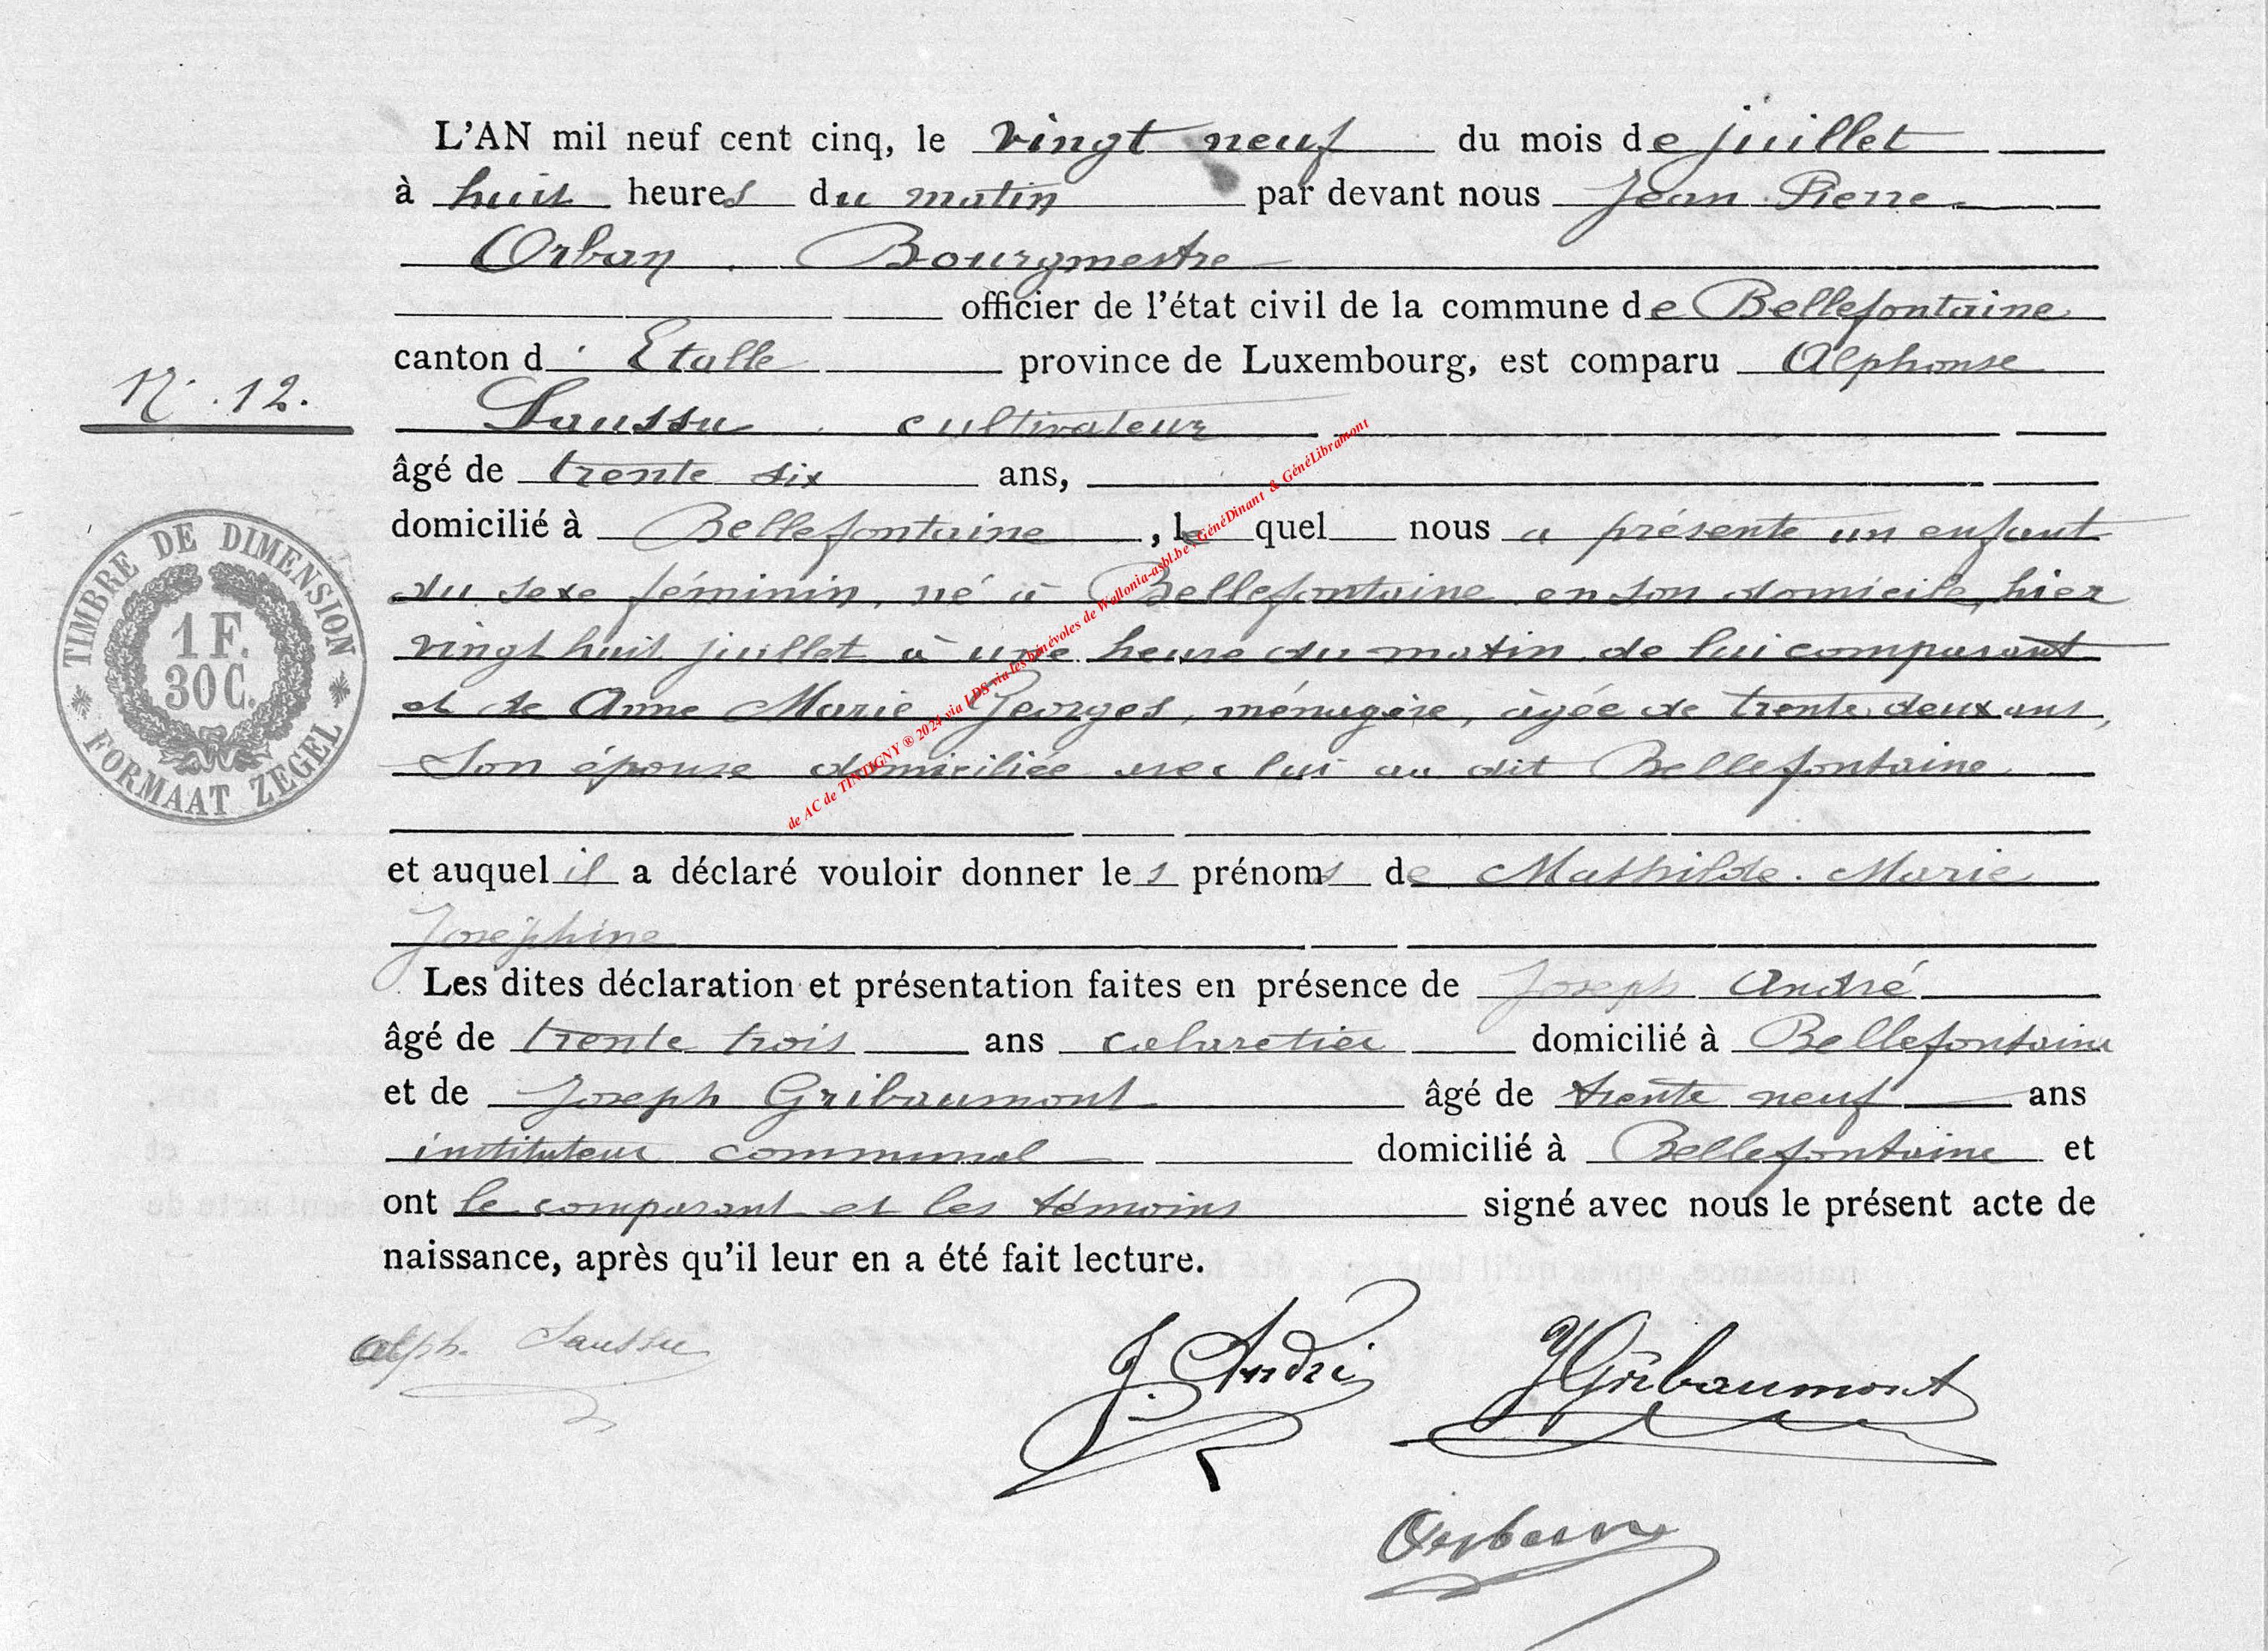 L'AN mil neuf cent cinq, le vingt neuf du mois de juillet
à huit heures du matin par devant nous Jean Pierre
Orban Bourgmestre
officier de l'état civil de la commune de Bellefontaine
canton d' Etalle province de Luxembourg, est comparu Alphonse
N. 12.
Saussu cultivateur
âgé de trente six ans,
domicilié à Bellefontaine, le quel nous a présenté un enfant
du sexe féminin, né à Bellefontaine en son domicile, hier
vingt huit juillet à une heure du matin, de lui comparant
et de Anne Marie Georges, ménagère, âgée de trente deux ans,
son épouse domiciliée avec lui au dit Bellefontaine
TIMBRE DE DIMENSION
1 F.
30 C.
FORMAAT ZEGEL
et auquel il a déclaré vouloir donner les prénoms de Mathilde. Marie
Joséphine
Les dites déclaration et présentation faites en présence de Joseph André
âgé de trente trois ans cabaretier domicilié à Bellefontaine
et de Joseph Gribaumont âgé de trente neuf ans
instituteur communal domicilié à Bellefontaine et
ont le comparant et les témoins signé avec nous le présent acte de
naissance, après qu'il leur en a été fait lecture.
Alph. Saussu
J. André
J Gribaumont
Orban
de AC de TINTIGNY ® 2024 via LDS via les bénévoles de Wallonia-asbl.be, GénéDinant & GénéLibramont